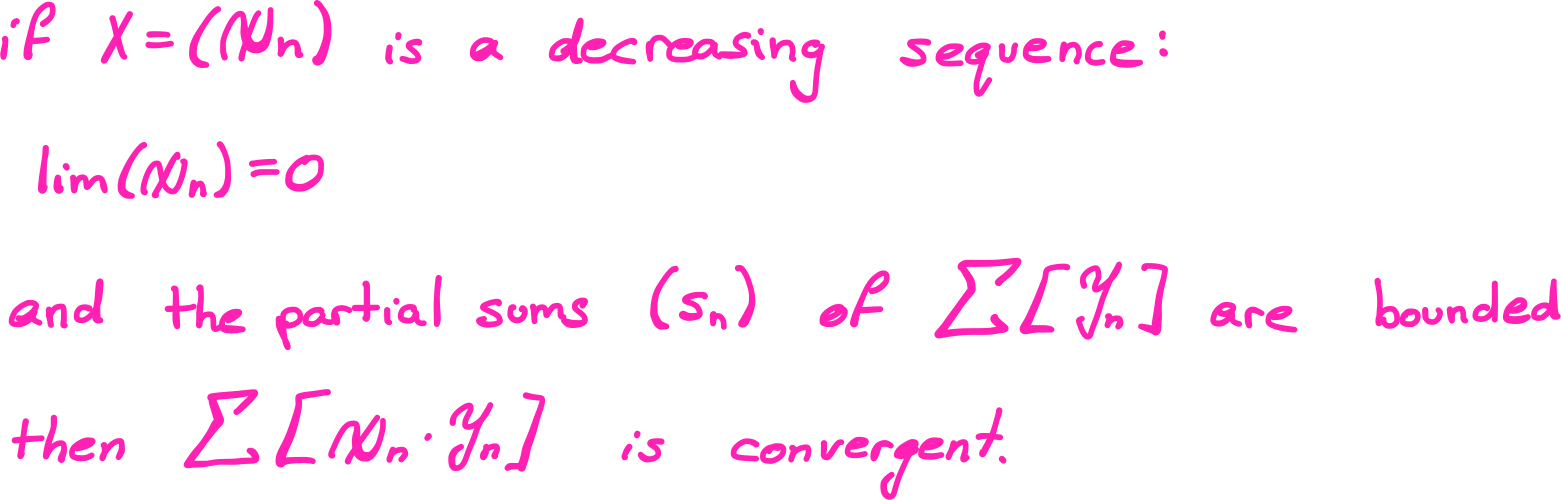 if X = (xn) is a decreasing sequence:
lim(xn) = 0
and the partial sums (sn) of Σ[yn] are bounded
then Σ[xn·yn] is convergent.